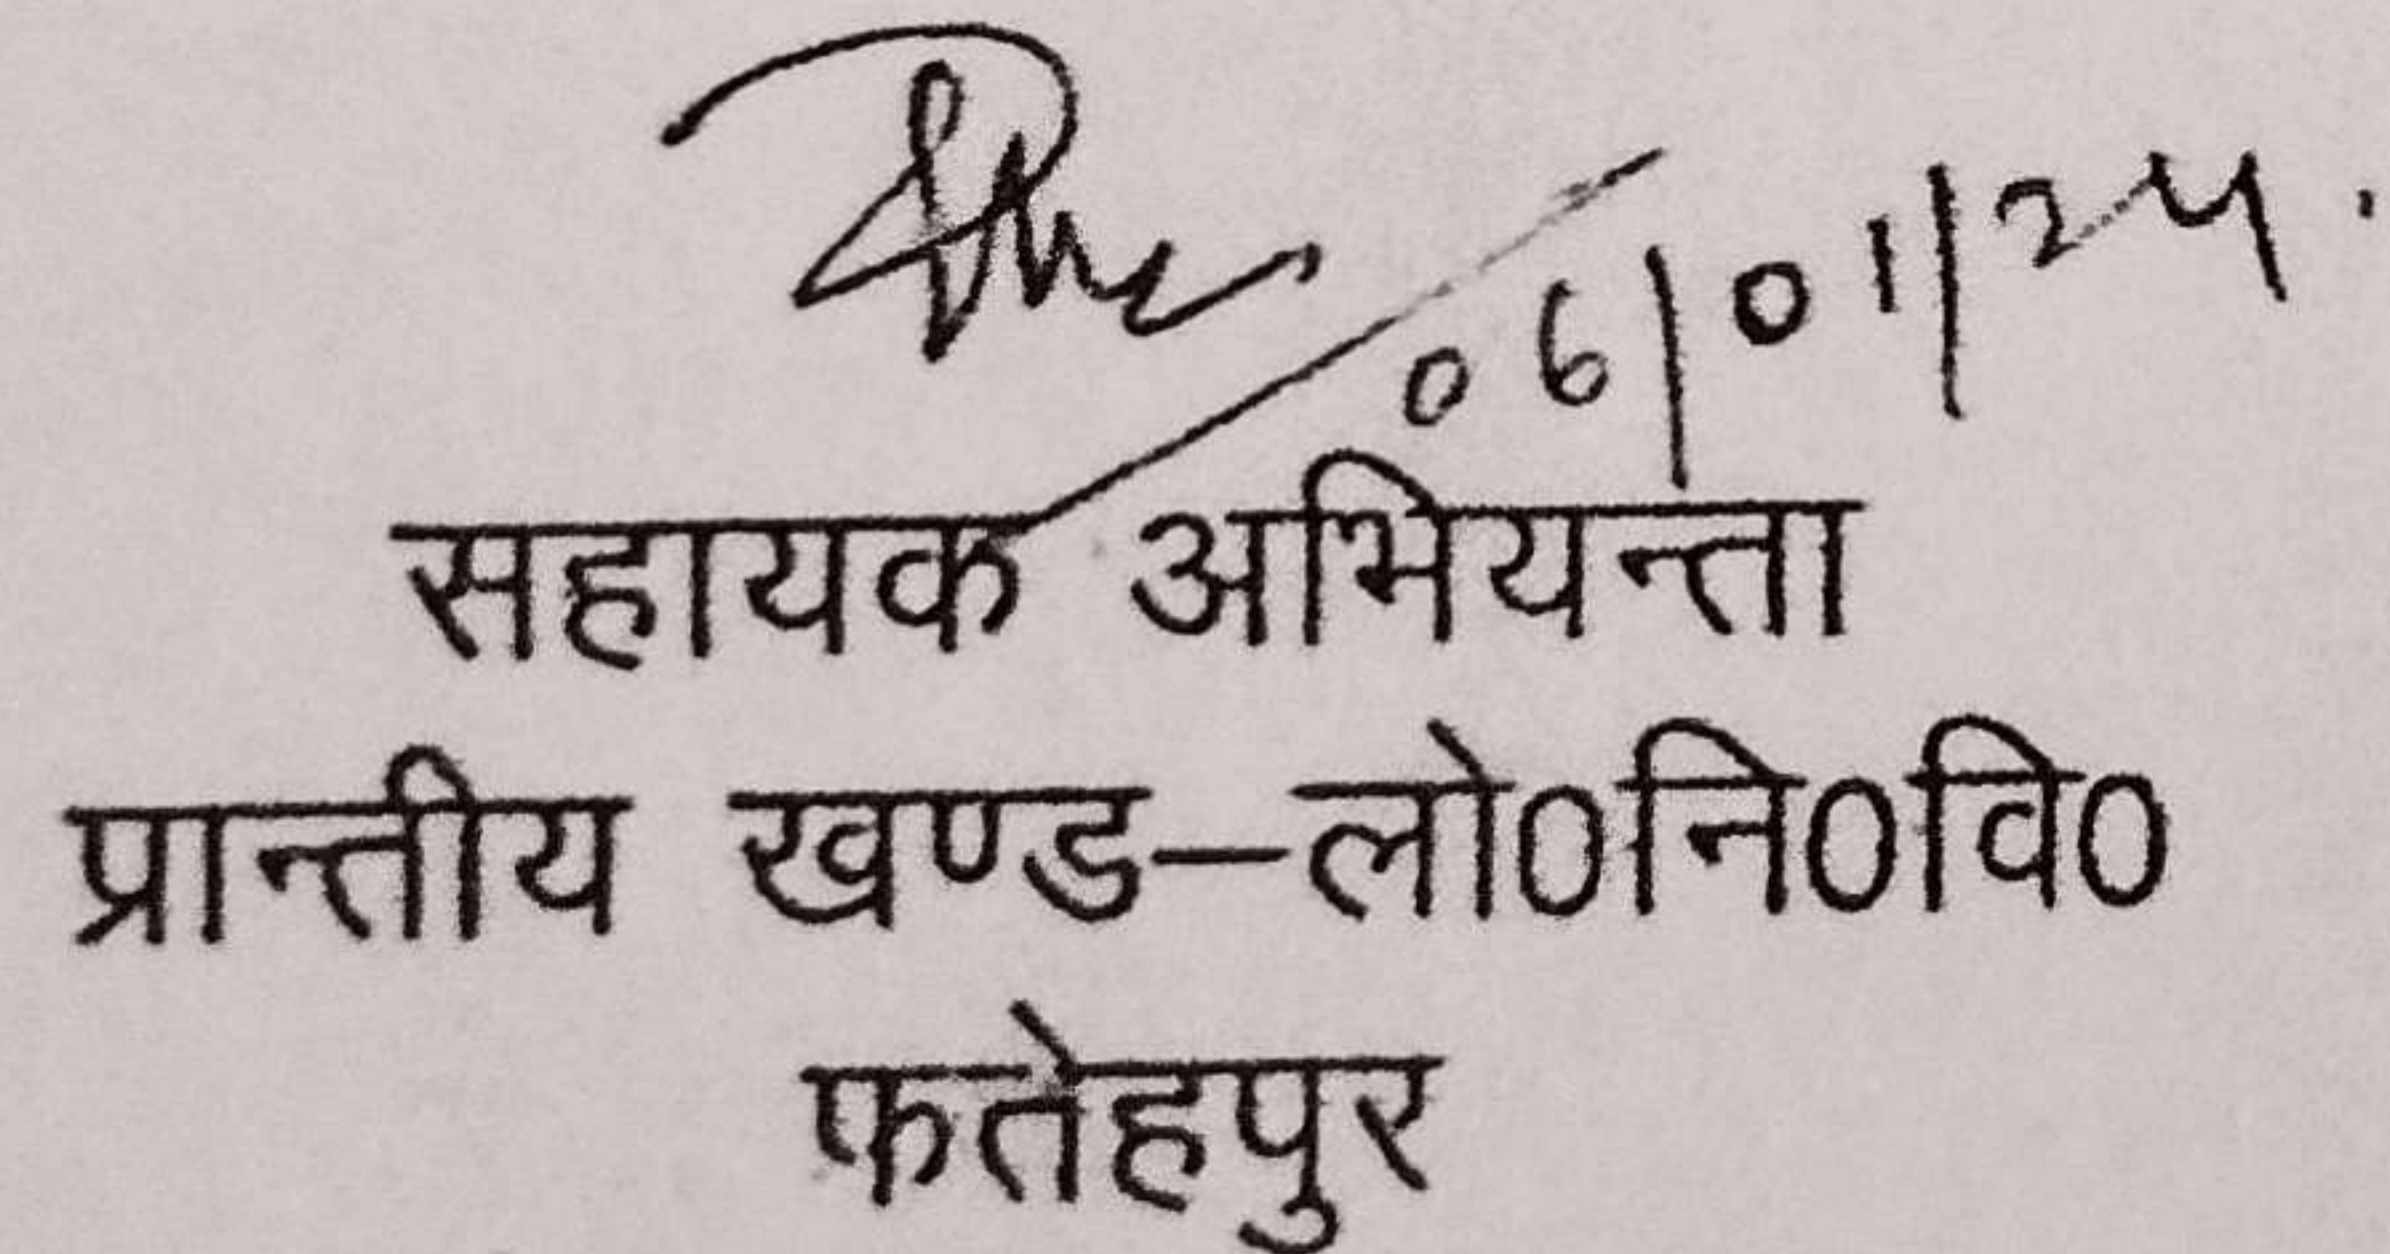 06/01/24.
सहायक अभियन्ता
प्रान्तीय खण्ड–लो०नि०वि०
फतेहपुर